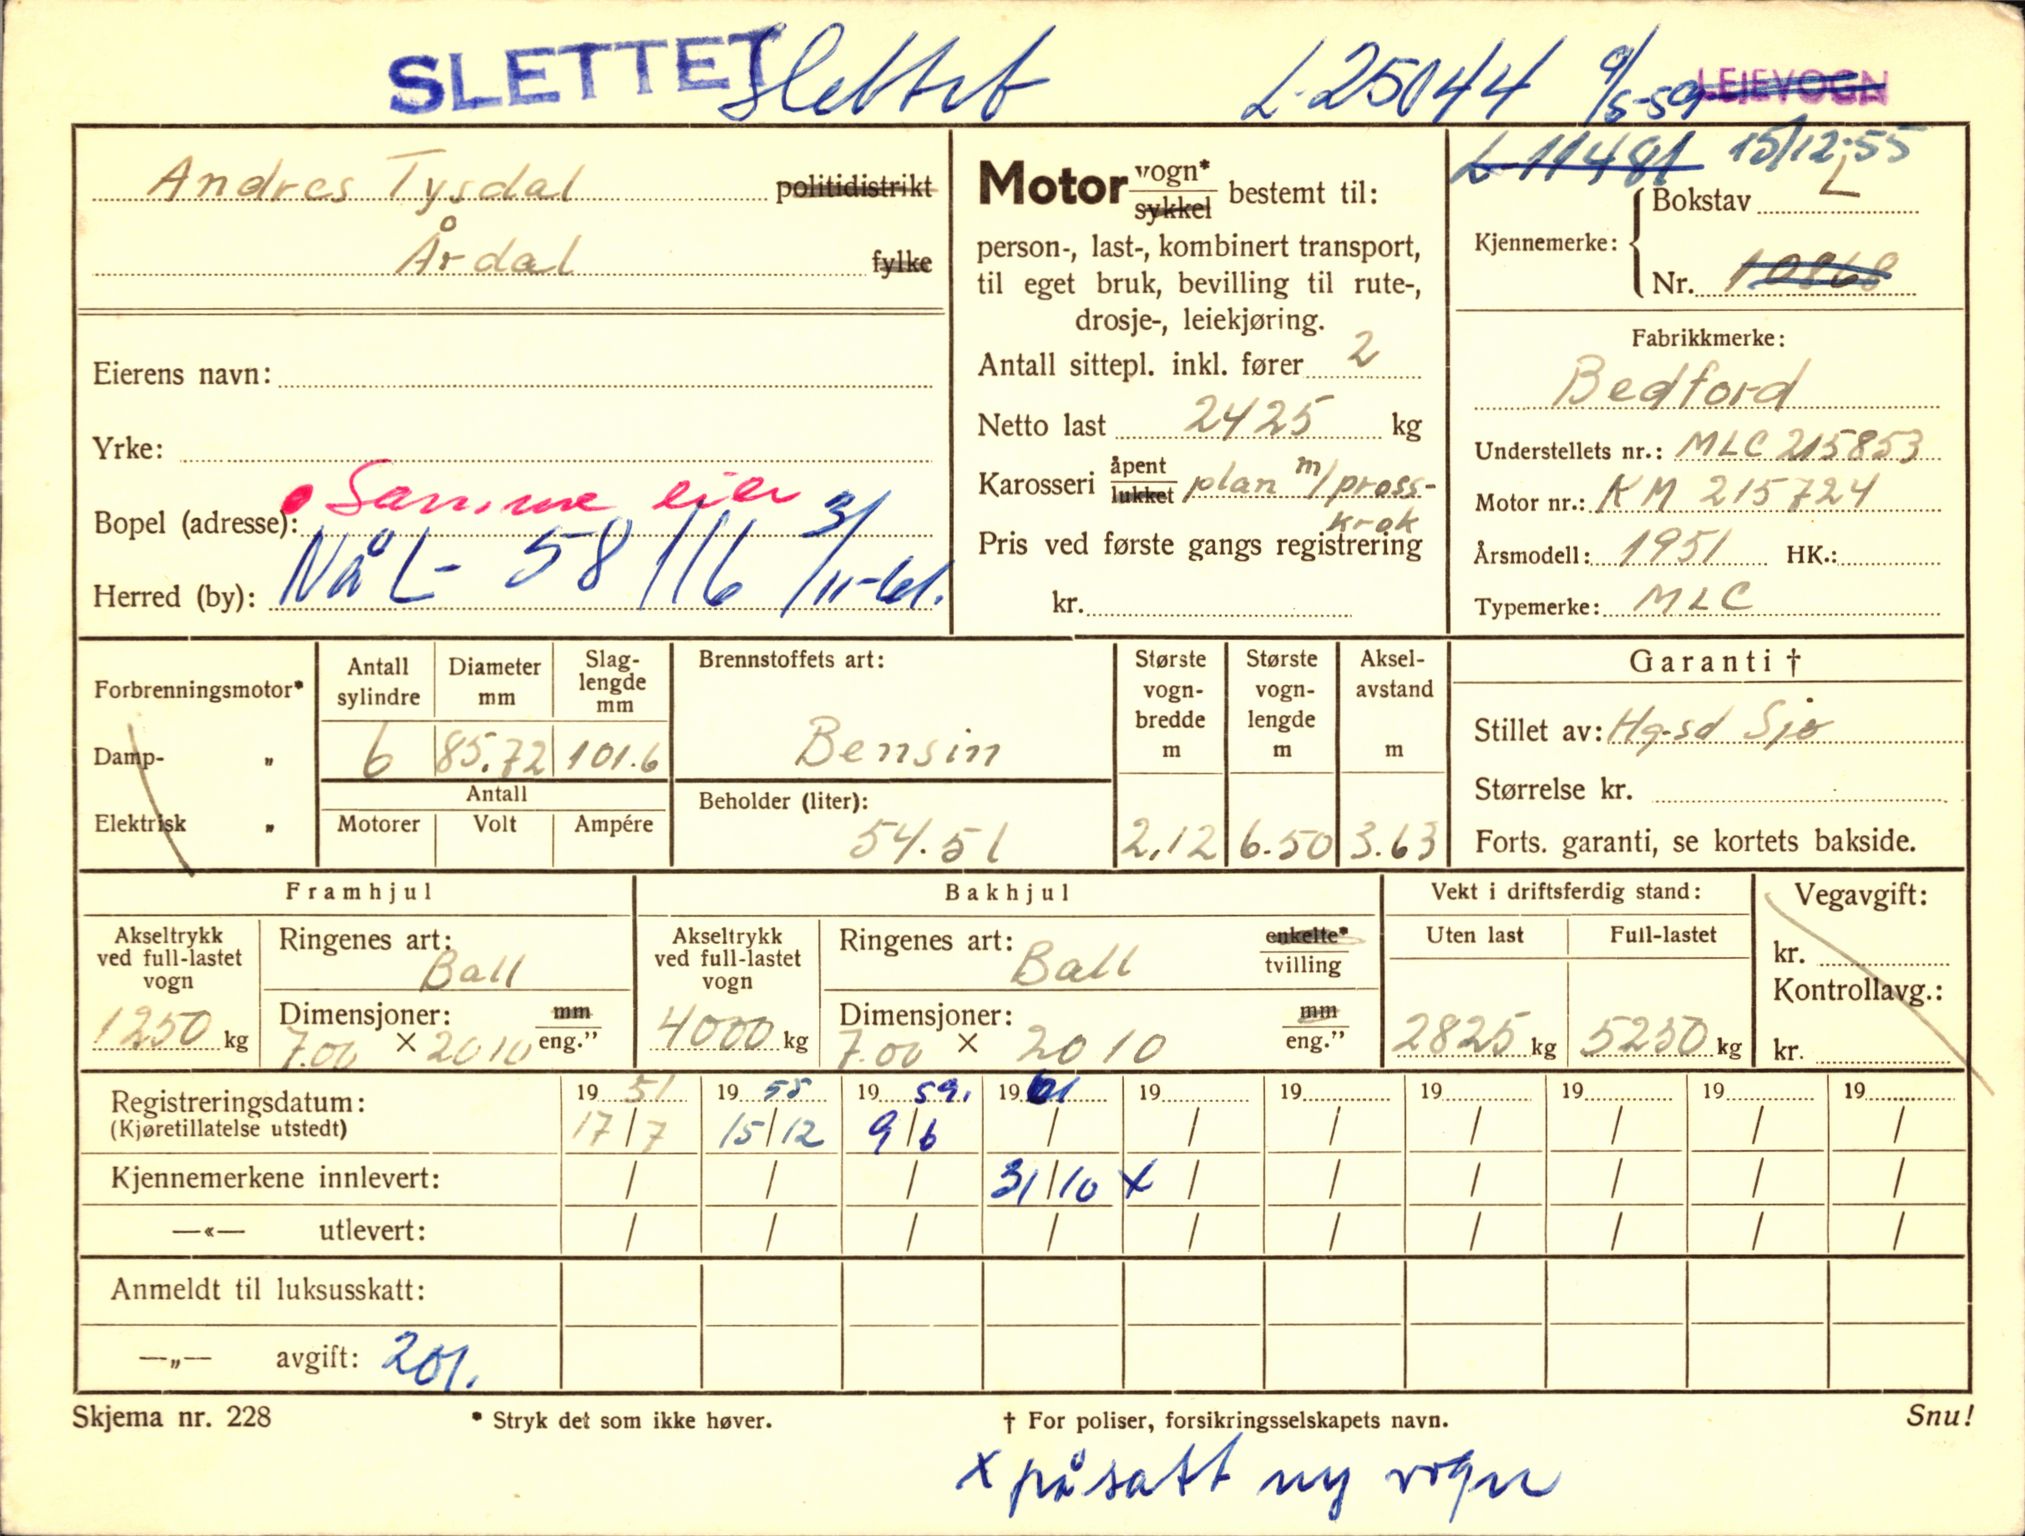 SLETTET Slettet L-25044 9/5-59 LEIEVOGN
Andres Tysdal politidistrikt
Årdal fylke
Eierens navn:
Yrke:
Samme eier
Bopel (adresse):
Herred (by): Nå L- 58116 3/11-61.
Motor vogn*
sykkel bestemt til:
person-, last-, kombinert transport,
til eget bruk, bevilling til rute-,
drosje-, leiekjøring.
Antall sittepl. inkl. fører 2
Netto last 2425 kg
Karosseri åpent
lukket plan m/press-
krok
Pris ved første gangs registrering
kr.
L-11481 15/12-55
Kjennemerke: Bokstav L
Nr. 10868
Fabrikkmerke:
Bedford
Understellets nr.: MLC 215853
Motor nr.: KM 215724
Årsmodell: 1951 HK.:
Typemerke: MLC
Forbrenningsmotor*
Damp- „
Elektrisk „
Antall sylindre
Diameter mm
Slag-lengde mm
6 85.72 101.6
Antall
Motorer Volt Ampére
Brennstoffets art:
Bensin
Beholder (liter):
54.5 l
Største vogn-bredde m
2.12
Største vogn-lengde m
6.50
Aksel-avstand m
3.63
Garanti †
Stillet av: Hg-sd Sjø
Størrelse kr.
Forts. garanti, se kortets bakside.
Framhjul
Akseltrykk
ved full-lastet
vogn
1250 kg
Ringenes art:
Ball
Dimensjoner: mm
7.00 × 20 10 eng.”
Bakhjul
Akseltrykk
ved full-lastet
vogn
4000 kg
Ringenes art: enkelte*
Ball tvilling
Dimensjoner: mm
7.00 × 20 10 eng.”
Vekt i driftsferdig stand:
Uten last Full-lastet
2825 kg 5250 kg
Vegavgift:
kr.
Kontrollavg.:
kr.
Registreringsdatum: 19 51 19 55 19 59. 19 61 19 19 19 19 19 19
(Kjøretillatelse utstedt) 17/7 15/12 9/6 / / / / / / /
Kjennemerkene innlevert: / / / 31/10 x / / / / / /
—«— utlevert: / / / / / / / / / /
Anmeldt til luksusskatt:
—„— avgift: 201.
Skjema nr. 228 * Stryk det som ikke høver. † For poliser, forsikringsselskapets navn. Snu!
x påsatt ny vogn